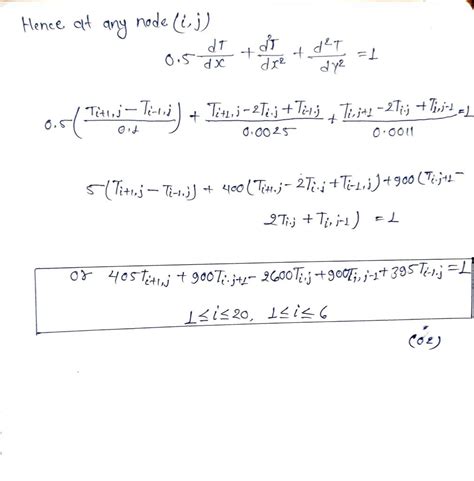 Hence at any node (i, j)
0.5 dT/dx + d²T/dx² + d²T/dy² = 1
0.5 ( (Ti+1,j − Ti-1,j)/0.1 ) + (Ti+1,j − 2Ti,j + Ti-1,j)/0.0025 + (Ti,j+1 − 2Ti,j + Ti,j-1)/0.0011 = 1
5(Ti+1,j − Ti-1,j) + 400(Ti+1,j − 2Ti,j + Ti-1,j) + 900(Ti,j+1 −
2Ti,j + Ti,j-1) = 1
or 405Ti+1,j + 900Ti,j+1 − 2600Ti,j + 900Ti,j-1 + 395Ti-1,j = 1
1 ≤ i ≤ 20, 1 ≤ i ≤ 6
(02)